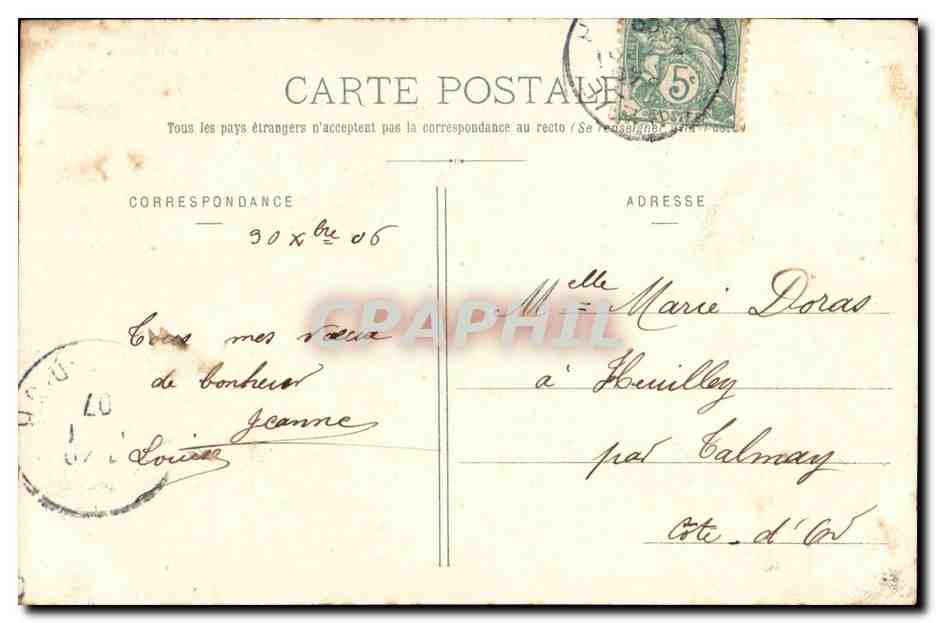 CARTE POSTALE
5c
Tous les pays étrangers n'acceptent pas la correspondance au recto (Se renseigner
CORRESPONDANCE
ADRESSE
30 Xbre 06
Tous mes vœux
de bonheur
Jeanne
Louise
Melle Marie Doras
à Heuilley
par Talmay
Côte-d'Or
07
CPAPHIL